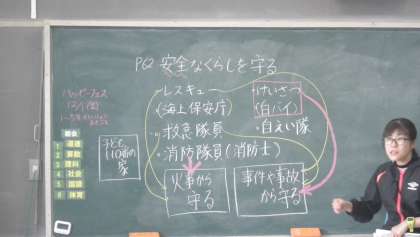 P62 安全なくらしを守る
ハッピーフェス
レスキュー
(海上保安庁)
・救急隊員
・消防隊員(消防士)
けいさつ
(白バイ)
・自えい隊
子ども
110番の
家
火事から
守る
事件や事故
から守る
1 道徳
2 算数
3 理科
4 社会
5 国語
6 体育